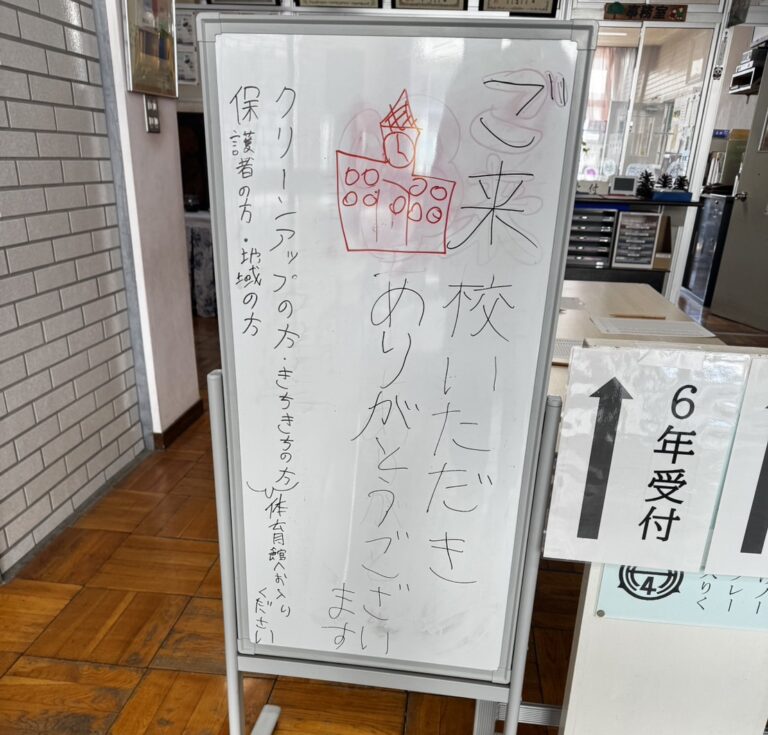 ご来校いただき
ありがとうございます
クリーンアップの方・きちきちの方
保護者の方・地域の方
体育館へお入りください
6年受付
4